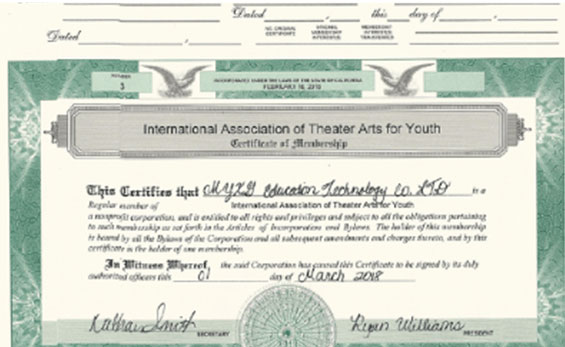 Dated , this day of ,
NO. ORIGINAL CERTIFICATE
Dated ,
NUMBER
3
INCORPORATED UNDER THE LAWS OF THE STATE OF CALIFORNIA
FEBRUARY 16, 2018
International Association of Theater Arts for Youth
Certificate of Membership
This Certifies that MYXY Education Technology Co. LTD is a
Regular member of International Association of Theater Arts for Youth
a nonprofit corporation, and is entitled to all rights and privileges and subject to all the obligations pertaining
to such membership as set forth in the Articles of Incorporation and Bylaws. The holder of this membership
is bound by all the Bylaws of the Corporation and all subsequent amendments and changes thereto, and by this
certificate is the holder of one membership.
In Witness Whereof, the said Corporation has caused this Certificate to be signed by its duly
authorized officers this 01 day of March 2018
Nathan Smith SECRETARY
Ryan Williams PRESIDENT